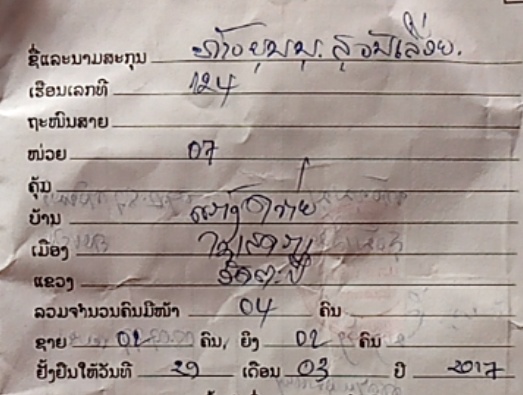 ຊື່ແລະນາມສະກຸນ ທ້າວ
ເຮືອນເລກທີ 124
ຖະໜົນສາຍ
ໜ່ວຍ 07
ຄຸ້ມ
ບ້ານ
ເມືອງ ໄຊເສດຖາ
ແຂວງ ອັດຕະປື
ລວມຈຳນວນຄົນມີໜ້າ 04 ຄົນ
ຊາຍ 02 ຄົນ, ຍິງ 02 ຄົນ
ຢັ້ງຢືນໃຫ້ວັນທີ 29 ເດືອນ 03 ປີ 2017